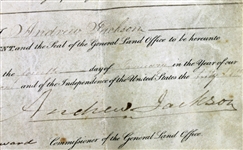 Andrew Jackson
ENT, and the Seal of the General Land Office to be hereunto
the day of in the Year of our
and of the Independence of the United States the
Andrew Jackson
ward Commissioner of the General Land Office.